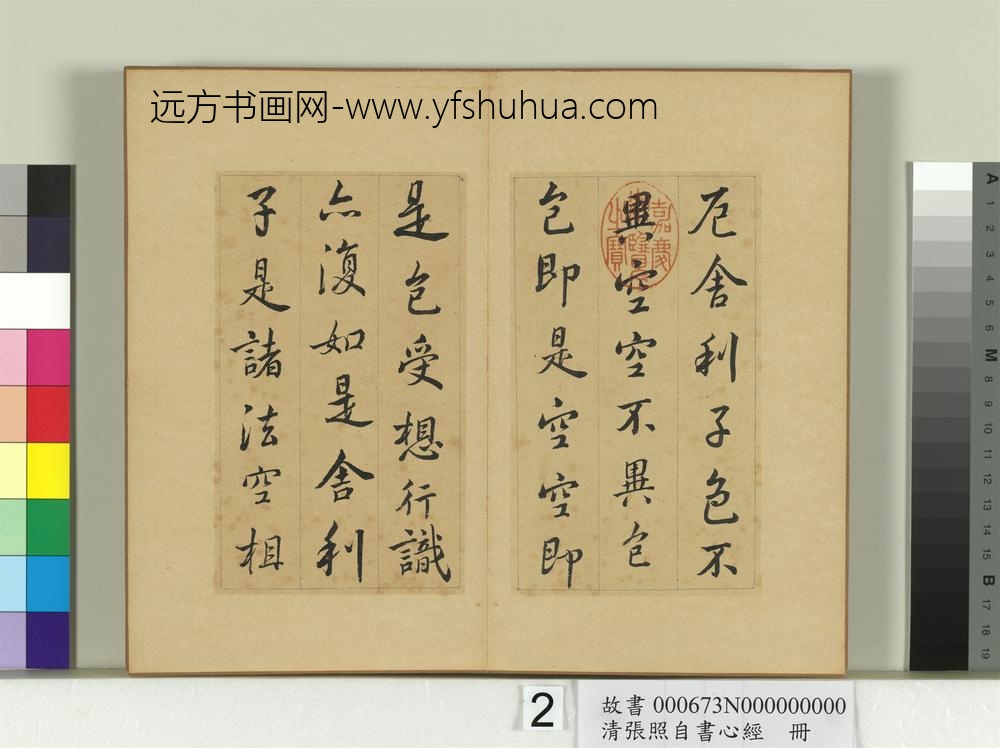 远方书画网-www.yfshuhua.com
厄舍利子色不
異空空不異色
色即是空空即
是色受想行識
亦復如是舍利
子是諸法空相
嘉慶御覽之寶
2
故書 000673N000000000
清張照自書心經 冊
A
1
2
3
4
5
6
M
8
9
10
11
12
13
14
15
B
17
18
19